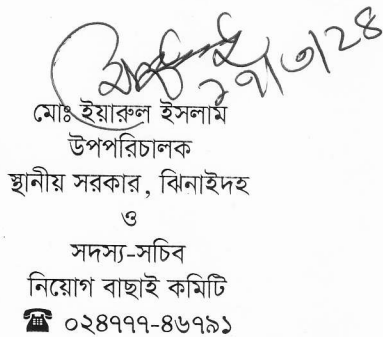 ২৭/৩/২৪
মোঃ ইয়ারুল ইসলাম
উপপরিচালক
স্থানীয় সরকার, ঝিনাইদহ
ও
সদস্য-সচিব
নিয়োগ বাছাই কমিটি
☎ ০২৪৭৭৭-৪৬৭৯১